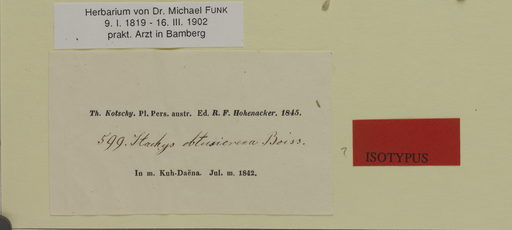 Herbarium von Dr. Michael FUNK
9. I. 1819 - 16. III. 1902
prakt. Arzt in Bamberg
Th. Kotschy. Pl. Pers. austr. Ed. R. F. Hohenacker. 1845.
599. Stachys obtusicrena Boiss.
In m. Kuh-Daëna. Jul. m. 1842.
? ISOTYPUS